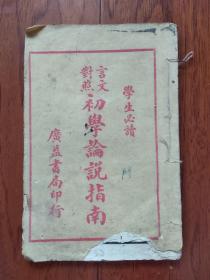 學生必讀
言文
對照
初學論說指南
廣益書局印行